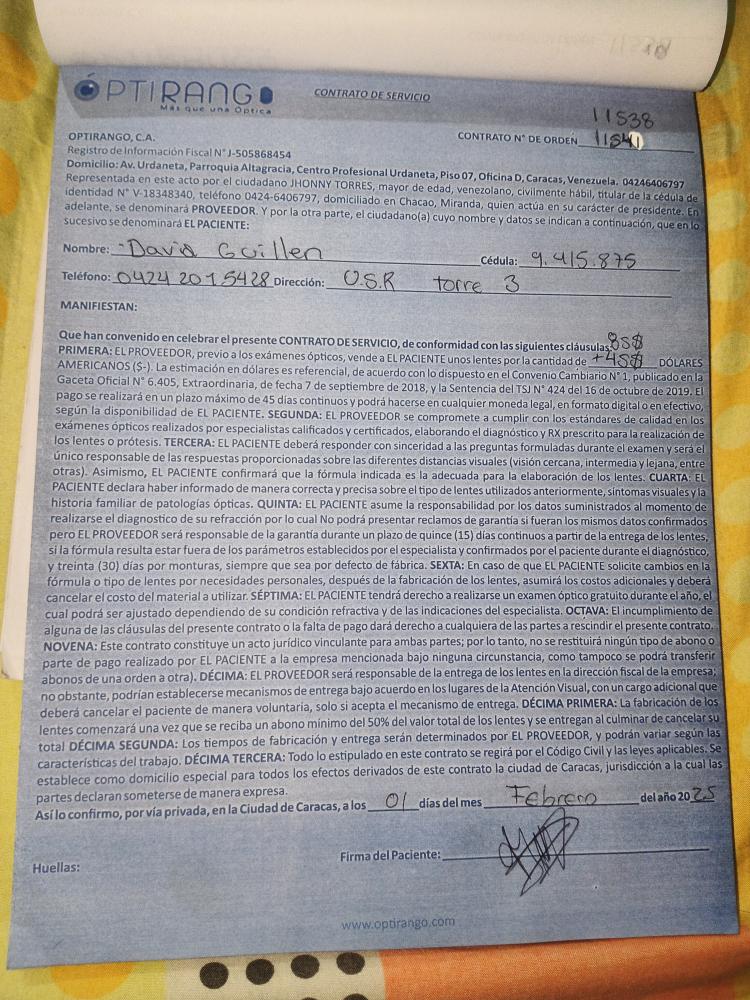 11538
ÓPTIRANGO
Más que una Óptica
CONTRATO DE SERVICIO
11538
CONTRATO N° DE ORDEN 11541
OPTIRANGO, C.A.
Registro de Información Fiscal N° J-505868454
Domicilio: Av. Urdaneta, Parroquia Altagracia, Centro Profesional Urdaneta, Piso 07, Oficina D, Caracas, Venezuela. 04246406797
Representada en este acto por el ciudadano JHONNY TORRES, mayor de edad, venezolano, civilmente hábil, titular de la cédula de
identidad N° V-18348340, teléfono 0424-6406797, domiciliado en Chacao, Miranda, quien actúa en su carácter de presidente. En
adelante, se denominará PROVEEDOR. Y por la otra parte, el ciudadano(a) cuyo nombre y datos se indican a continuación, que en lo
sucesivo se denominará EL PACIENTE:
Nombre: David Guillen Cédula: 9.415.875
Teléfono: 0424 2015428 Dirección: U.S.R torre 3
MANIFIESTAN:
Que han convenido en celebrar el presente CONTRATO DE SERVICIO, de conformidad con las siguientes cláusulas: 85$
PRIMERA: EL PROVEEDOR, previo a los exámenes ópticos, vende a EL PACIENTE unos lentes por la cantidad de +45$ DÓLARES
AMERICANOS ($-). La estimación en dólares es referencial, de acuerdo con lo dispuesto en el Convenio Cambiario N° 1, publicado en la
Gaceta Oficial N° 6.405, Extraordinaria, de fecha 7 de septiembre de 2018, y la Sentencia del TSJ N° 424 del 16 de octubre de 2019. El
pago se realizará en un plazo máximo de 45 días continuos y podrá hacerse en cualquier moneda legal, en formato digital o en efectivo,
según la disponibilidad de EL PACIENTE. SEGUNDA: EL PROVEEDOR se compromete a cumplir con los estándares de calidad en los
exámenes ópticos realizados por especialistas calificados y certificados, elaborando el diagnóstico y RX prescrito para la realización de
los lentes o prótesis. TERCERA: EL PACIENTE deberá responder con sinceridad a las preguntas formuladas durante el examen y será el
único responsable de las respuestas proporcionadas sobre las diferentes distancias visuales (visión cercana, intermedia y lejana, entre
otras). Asimismo, EL PACIENTE confirmará que la fórmula indicada es la adecuada para la elaboración de los lentes. CUARTA: EL
PACIENTE declara haber informado de manera correcta y precisa sobre el tipo de lentes utilizados anteriormente, síntomas visuales y la
historia familiar de patologías ópticas. QUINTA: EL PACIENTE asume la responsabilidad por los datos suministrados al momento de
realizarse el diagnostico de su refracción por lo cual No podrá presentar reclamos de garantía si fueran los mismos datos confirmados
pero EL PROVEEDOR será responsable de la garantía durante un plazo de quince (15) días continuos a partir de la entrega de los lentes,
si la fórmula resulta estar fuera de los parámetros establecidos por el especialista y confirmados por el paciente durante el diagnóstico,
y treinta (30) días por monturas, siempre que sea por defecto de fábrica. SEXTA: En caso de que EL PACIENTE solicite cambios en la
fórmula o tipo de lentes por necesidades personales, después de la fabricación de los lentes, asumirá los costos adicionales y deberá
cancelar el costo del material a utilizar. SÉPTIMA: EL PACIENTE tendrá derecho a realizarse un examen óptico gratuito durante el año, el
cual podrá ser ajustado dependiendo de su condición refractiva y de las indicaciones del especialista. OCTAVA: El incumplimiento de
alguna de las cláusulas del presente contrato o la falta de pago dará derecho a cualquiera de las partes a rescindir el presente contrato.
NOVENA: Este contrato constituye un acto jurídico vinculante para ambas partes; por lo tanto, no se restituirá ningún tipo de abono o
parte de pago realizado por EL PACIENTE a la empresa mencionada bajo ninguna circunstancia, como tampoco se podrá transferir
abonos de una orden a otra). DÉCIMA: EL PROVEEDOR será responsable de la entrega de los lentes en la dirección fiscal de la empresa;
no obstante, podrían establecerse mecanismos de entrega bajo acuerdo en los lugares de la Atención Visual, con un cargo adicional que
deberá cancelar el paciente de manera voluntaria, solo si acepta el mecanismo de entrega. DÉCIMA PRIMERA: La fabricación de los
lentes comenzará una vez que se reciba un abono mínimo del 50% del valor total de los lentes y se entregan al culminar de cancelar su
total DÉCIMA SEGUNDA: Los tiempos de fabricación y entrega serán determinados por EL PROVEEDOR, y podrán variar según las
características del trabajo. DÉCIMA TERCERA: Todo lo estipulado en este contrato se regirá por el Código Civil y las leyes aplicables. Se
establece como domicilio especial para todos los efectos derivados de este contrato la ciudad de Caracas, jurisdicción a la cual las
partes declaran someterse de manera expresa.
Así lo confirmo, por vía privada, en la Ciudad de Caracas, a los 01 días del mes Febrero del año 2025
Firma del Paciente:
Huellas:
www.optirango.com